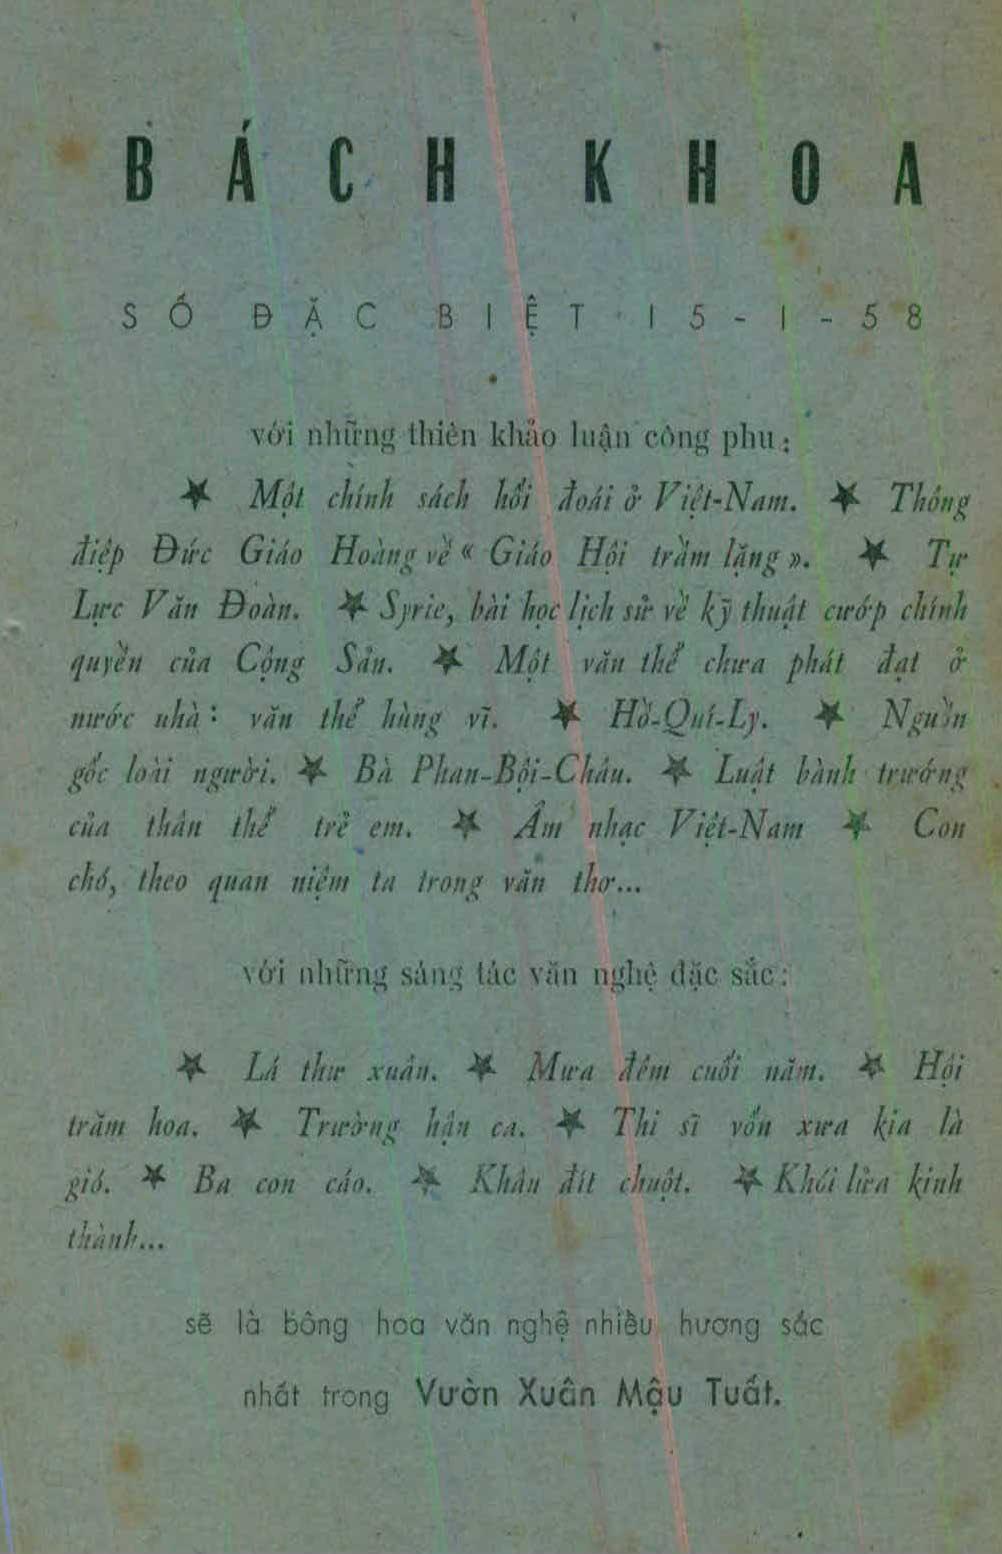 BÁCH KHOA
SỐ ĐẶC BIỆT 15-1-58
với những thiên khảo luận công phu:
★ Một chính sách hối đoái ở Việt-Nam. ★ Thông
điệp Đức Giáo Hoàng về « Giáo Hội trầm lặng ». ★ Tự
Lực Văn Đoàn. ★ Syrie, bài học lịch sử về kỹ thuật cướp chính
quyền của Cộng Sản. ★ Một văn thể chưa phát đạt ở
nước nhà: văn thể hùng vĩ. ★ Hồ-Quí-Ly. ★ Nguồn
gốc loài người. ★ Bà Phan-Bội-Châu. ★ Luật bành trướng
của thân thể trẻ em. ★ Âm nhạc Việt-Nam ★ Con
chó, theo quan niệm ta trong văn thơ...
với những sáng tác văn nghệ đặc sắc:
★ Lá thư xuân. ★ Mưa đêm cuối năm. ★ Hội
trăm hoa. ★ Trường hận ca. ★ Thi sĩ vốn xưa kia là
gió. ★ Ba con cáo. ★ Khâu đít chuột. ★ Khói lửa kinh
thành...
sẽ là bông hoa văn nghệ nhiều hương sắc
nhất trong Vườn Xuân Mậu Tuất.